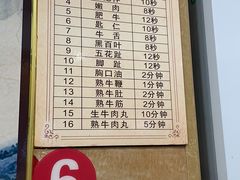 4 嫩肉 10秒
5 肥牛 8秒
6 匙仁 10秒
7 牛舌 8秒
8 黑百叶 12秒
9 五花趾 12秒
10 脚趾 12秒
11 胸口油 2分钟
12 熟牛鞭 1分钟
13 熟牛肚 2分钟
14 熟牛筋 2分钟
15 生牛肉丸 10分钟
16 熟牛肉丸 5分钟
6